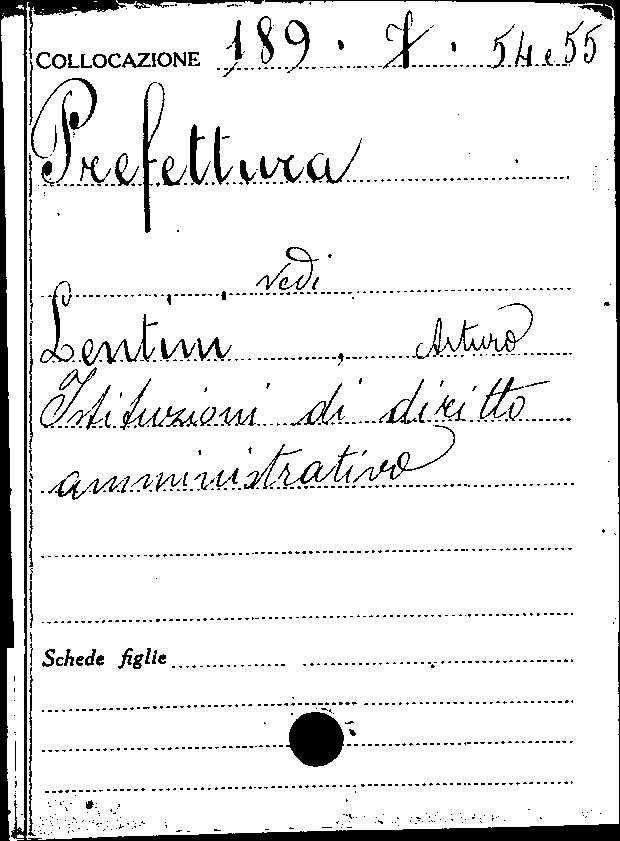 COLLOCAZIONE 189. 7. 54 e 55
Prefettura
vedi
Lentini, Arturo
Istituzioni di diritto
amministrativo
Schede figlie